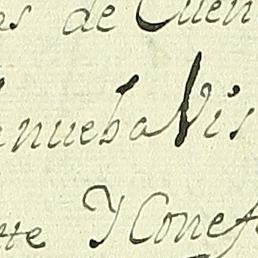 es de Cuen
nueba Vis
tte Y Conef